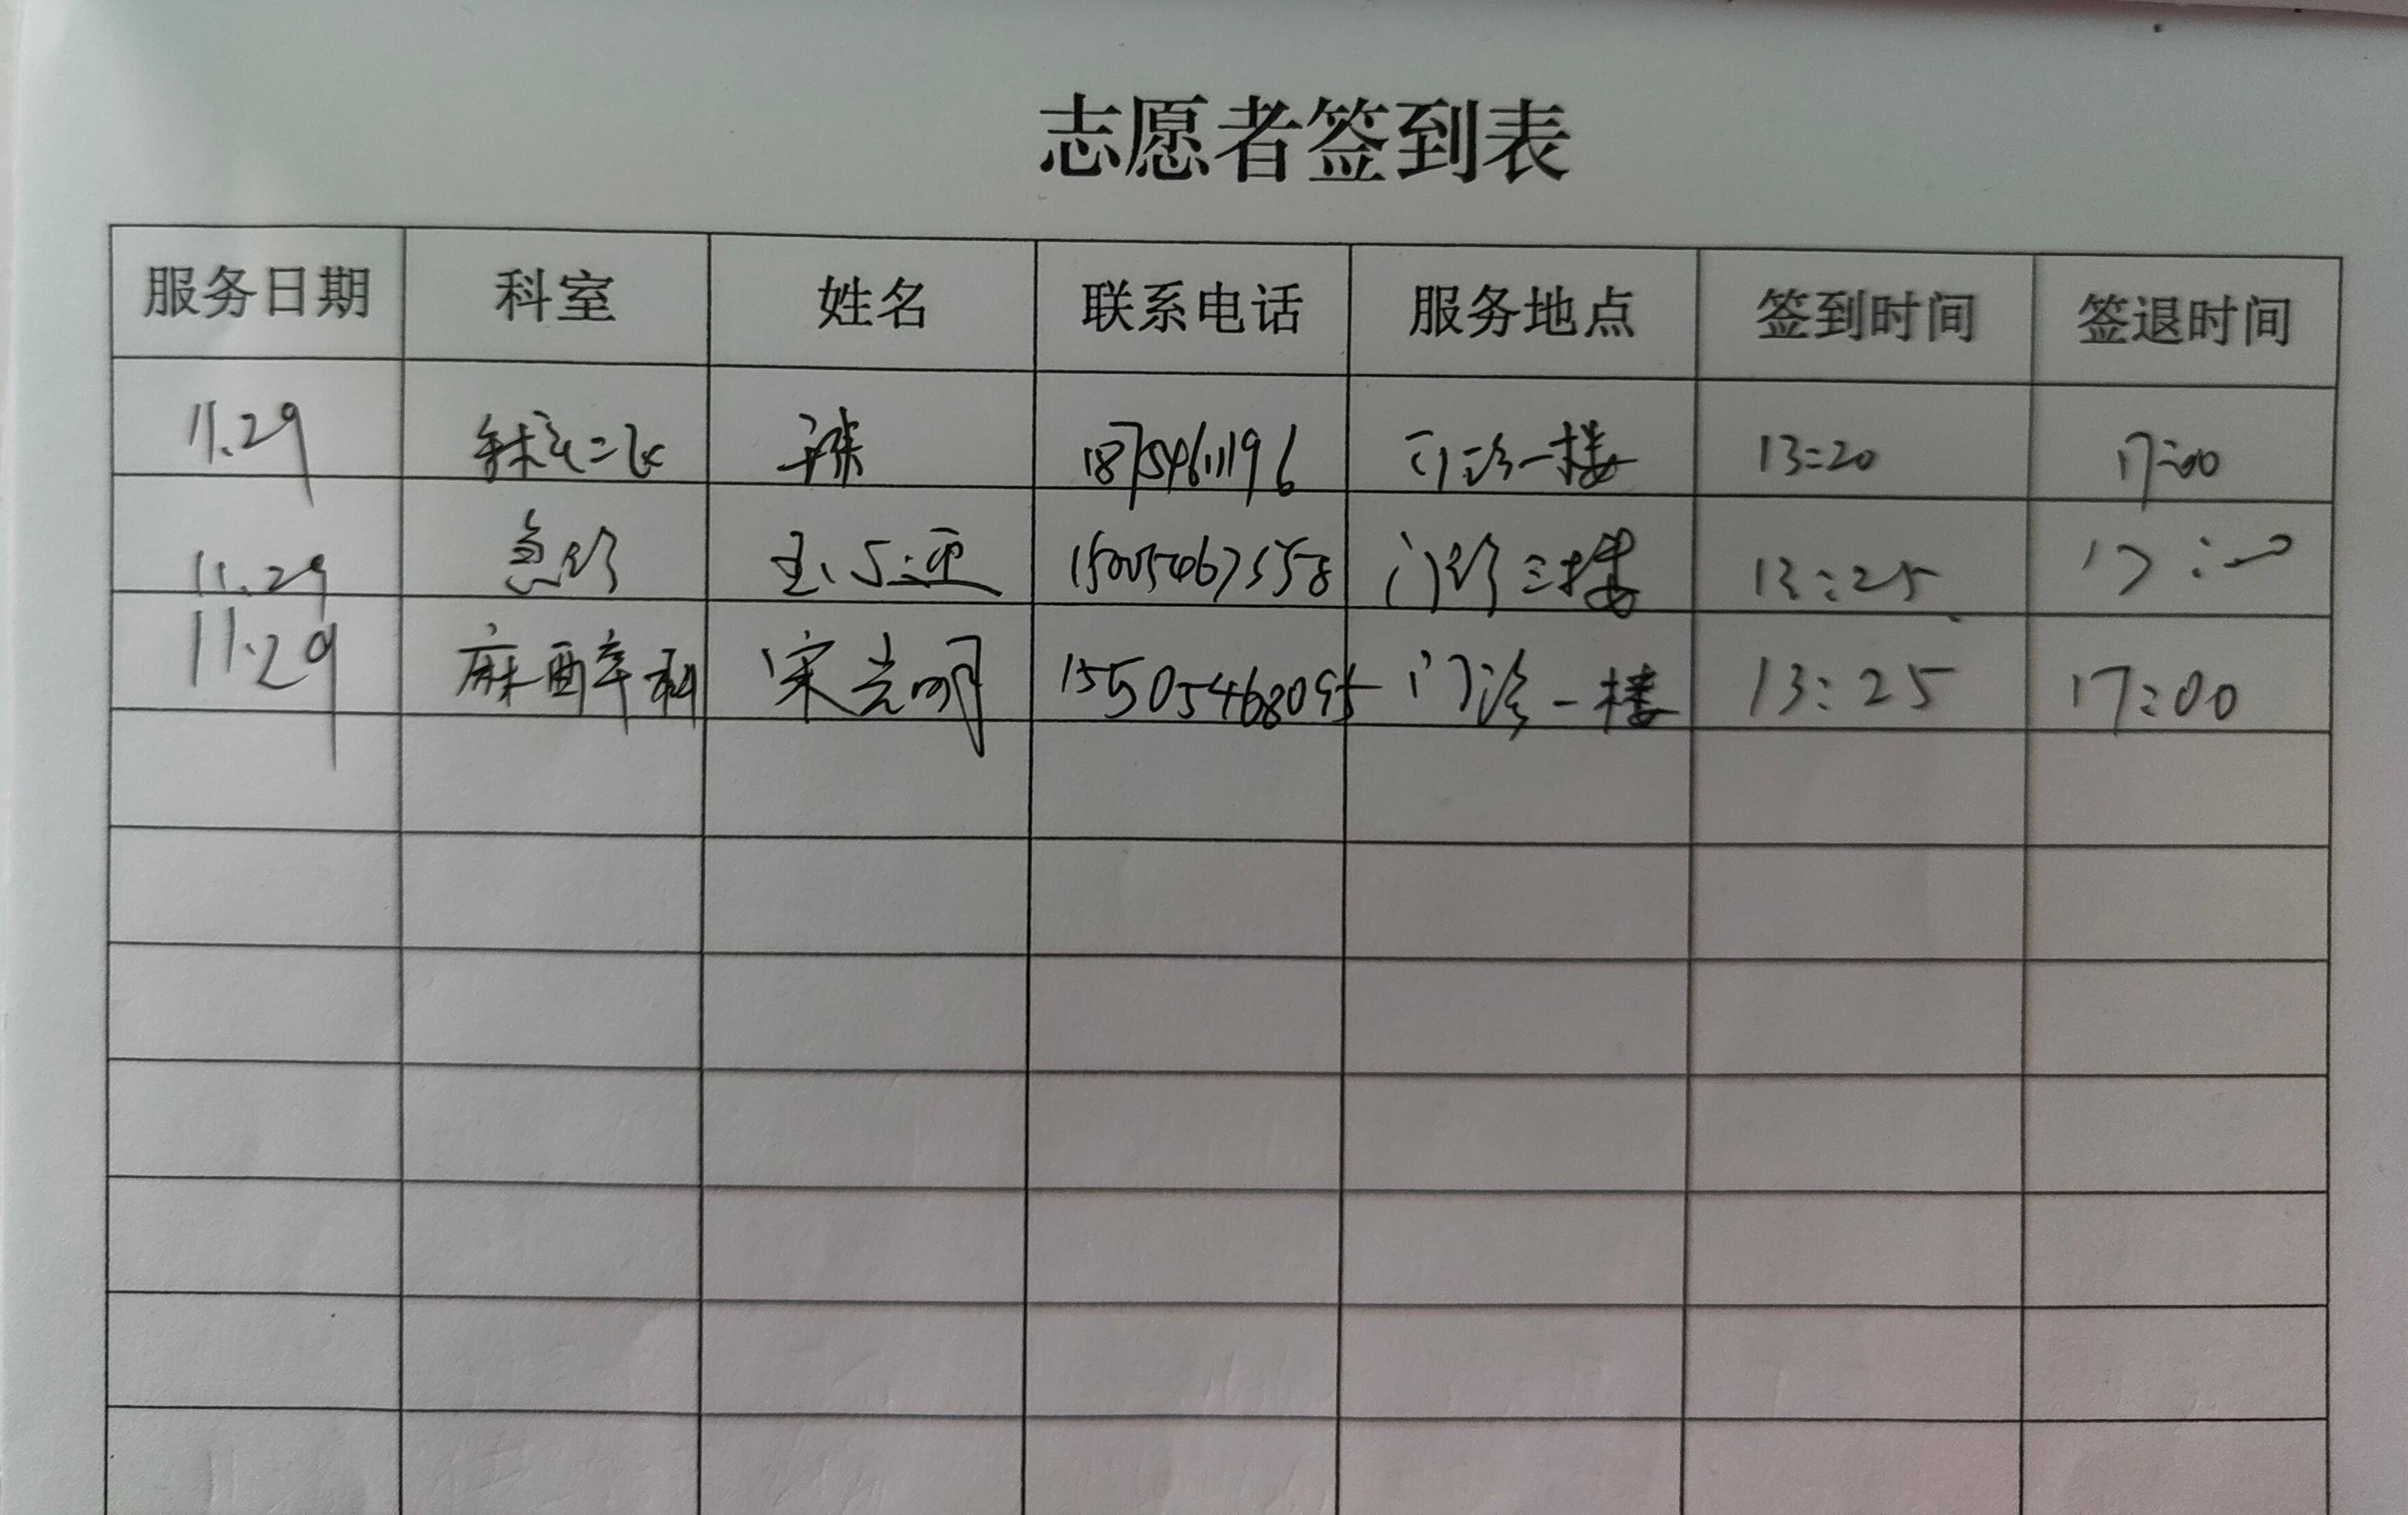 志愿者签到表
服务日期 科室 姓名 联系电话 服务地点 签到时间 签退时间
11.29 18754611196 门诊一楼 13:20 17:00
11.29 急诊 15005467558 门诊三楼 13:25 17:00
11.29 麻醉科 宋光明 15505468095 门诊一楼 13:25 17:00